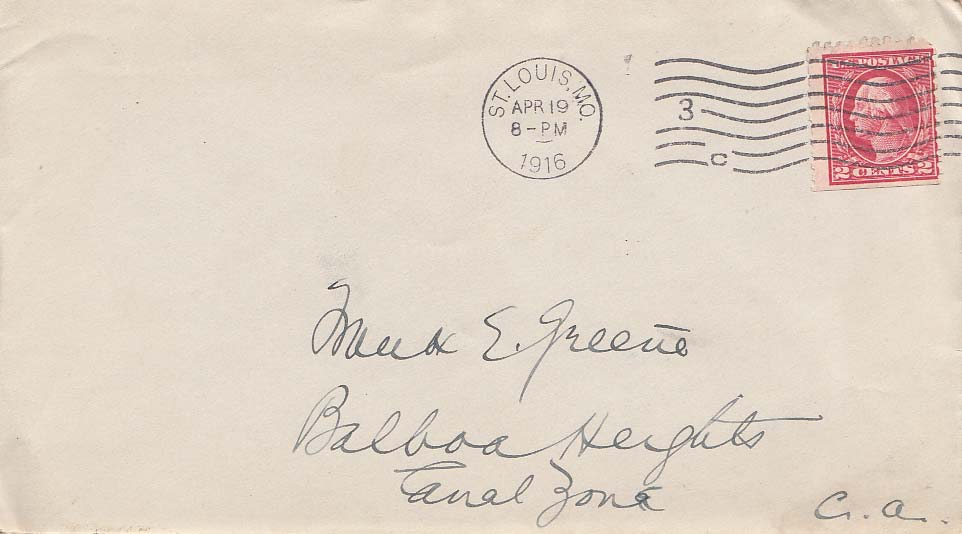 ST. LOUIS, MO.
APR 19
8-PM
1916
3
C
U.S. POSTAGE
2 CENTS 2
Frank E. Greene
Balboa Heights
Canal Zone
C. A.